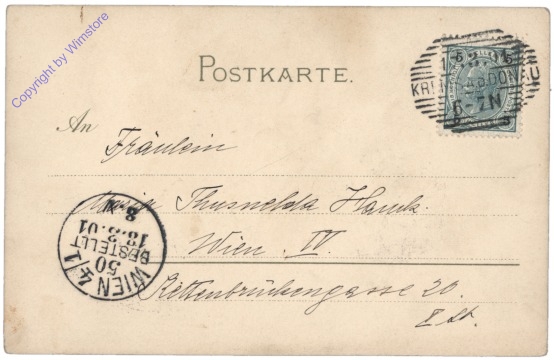 Copyright by Wimstore
POSTKARTE.
KREMS A.D. DONAU
6-7N
An
Fräulein
Maria Thusnelda Hauck
Wien. IV.
Kettenbrückengasse 20.
WIEN 4/1
50
BESTELLT
18.2.01
8